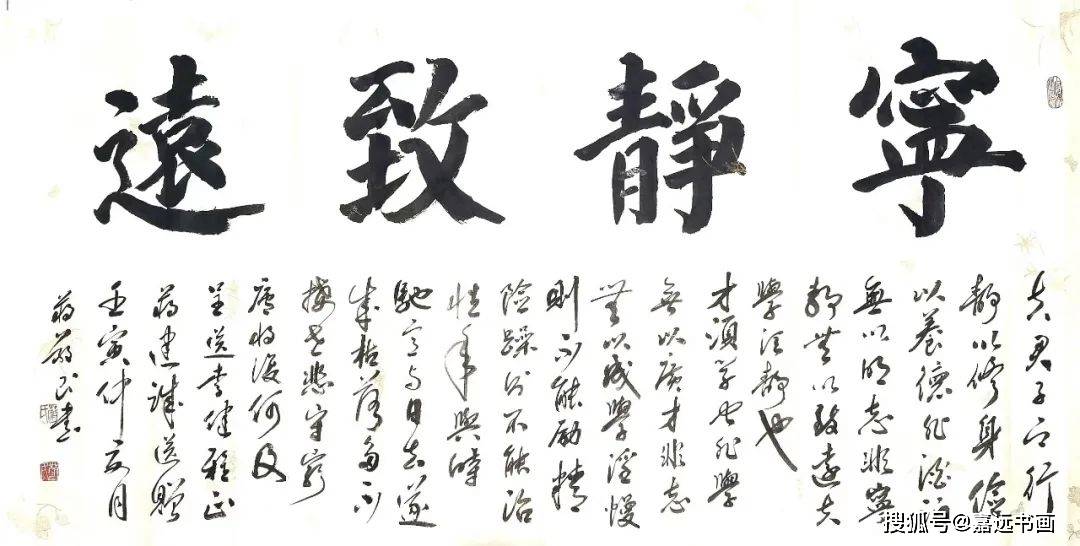 寧靜致遠
夫君子之行
靜以修身儉
以養德非澹泊
無以明志非寧
靜無以致遠夫
學須靜也
才須學也非學
無以廣才非志
無以成學淫慢
則不能励精
險躁則不能治
性年與時
馳意与日去遂
成枯落多不
接世悲守窮
廬將復何及
呈送李健雅正
蒋建誠送贈
壬寅仲夏月
蒋 書
搜狐号@嘉远书画